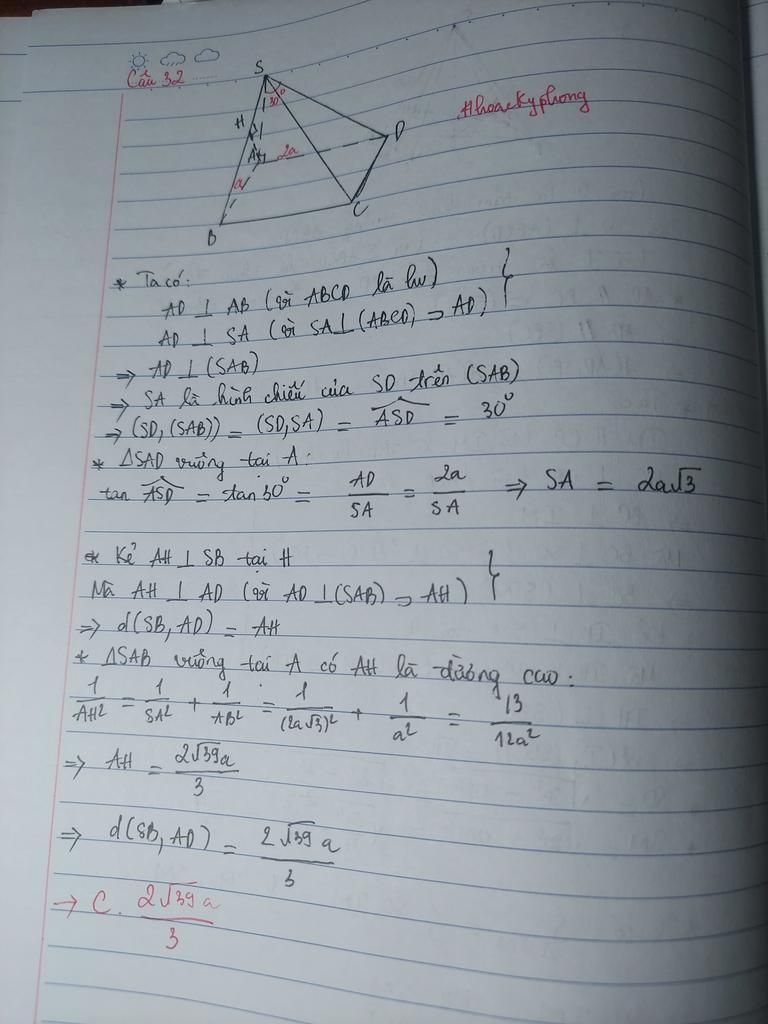 Câu 32
S
30°
H
#hoackyphong
A
2a
D
a
C
B
* Ta có:
AD ⊥ AB (vì ABCD là hv)
AD ⊥ SA (vì SA⊥(ABCD) ⊃ AD)
⇒ AD ⊥ (SAB)
⇒ SA là hình chiếu của SD trên (SAB)
⇒ (SD, (SAB)) = (SD, SA) = ASD = 30°
* ΔSAD vuông tại A:
tan ASD = tan 30° = AD/SA = 2a/SA ⇒ SA = 2a√3
* Kẻ AH ⊥ SB tại H
Mà AH ⊥ AD (vì AD ⊥(SAB) ⊃ AH)
⇒ d(SB, AD) = AH
* ΔSAB vuông tại A có AH là đường cao:
1/AH² = 1/SA² + 1/AB² = 1/(2a√3)² + 1/a² = 13/12a²
⇒ AH = 2√39a/3
⇒ d(SB, AD) = 2√39 a/3
→ C. 2√39 a/3